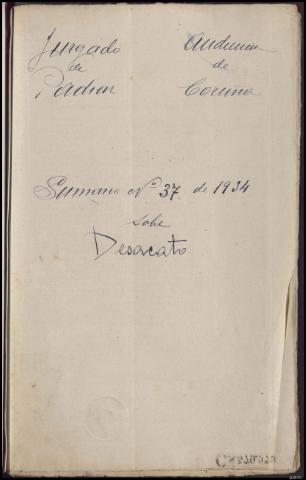 Juzgado
de
Padron
Audiencia
de
Coruña
Sumario Nº 37 de 1934
sobre
Desacato